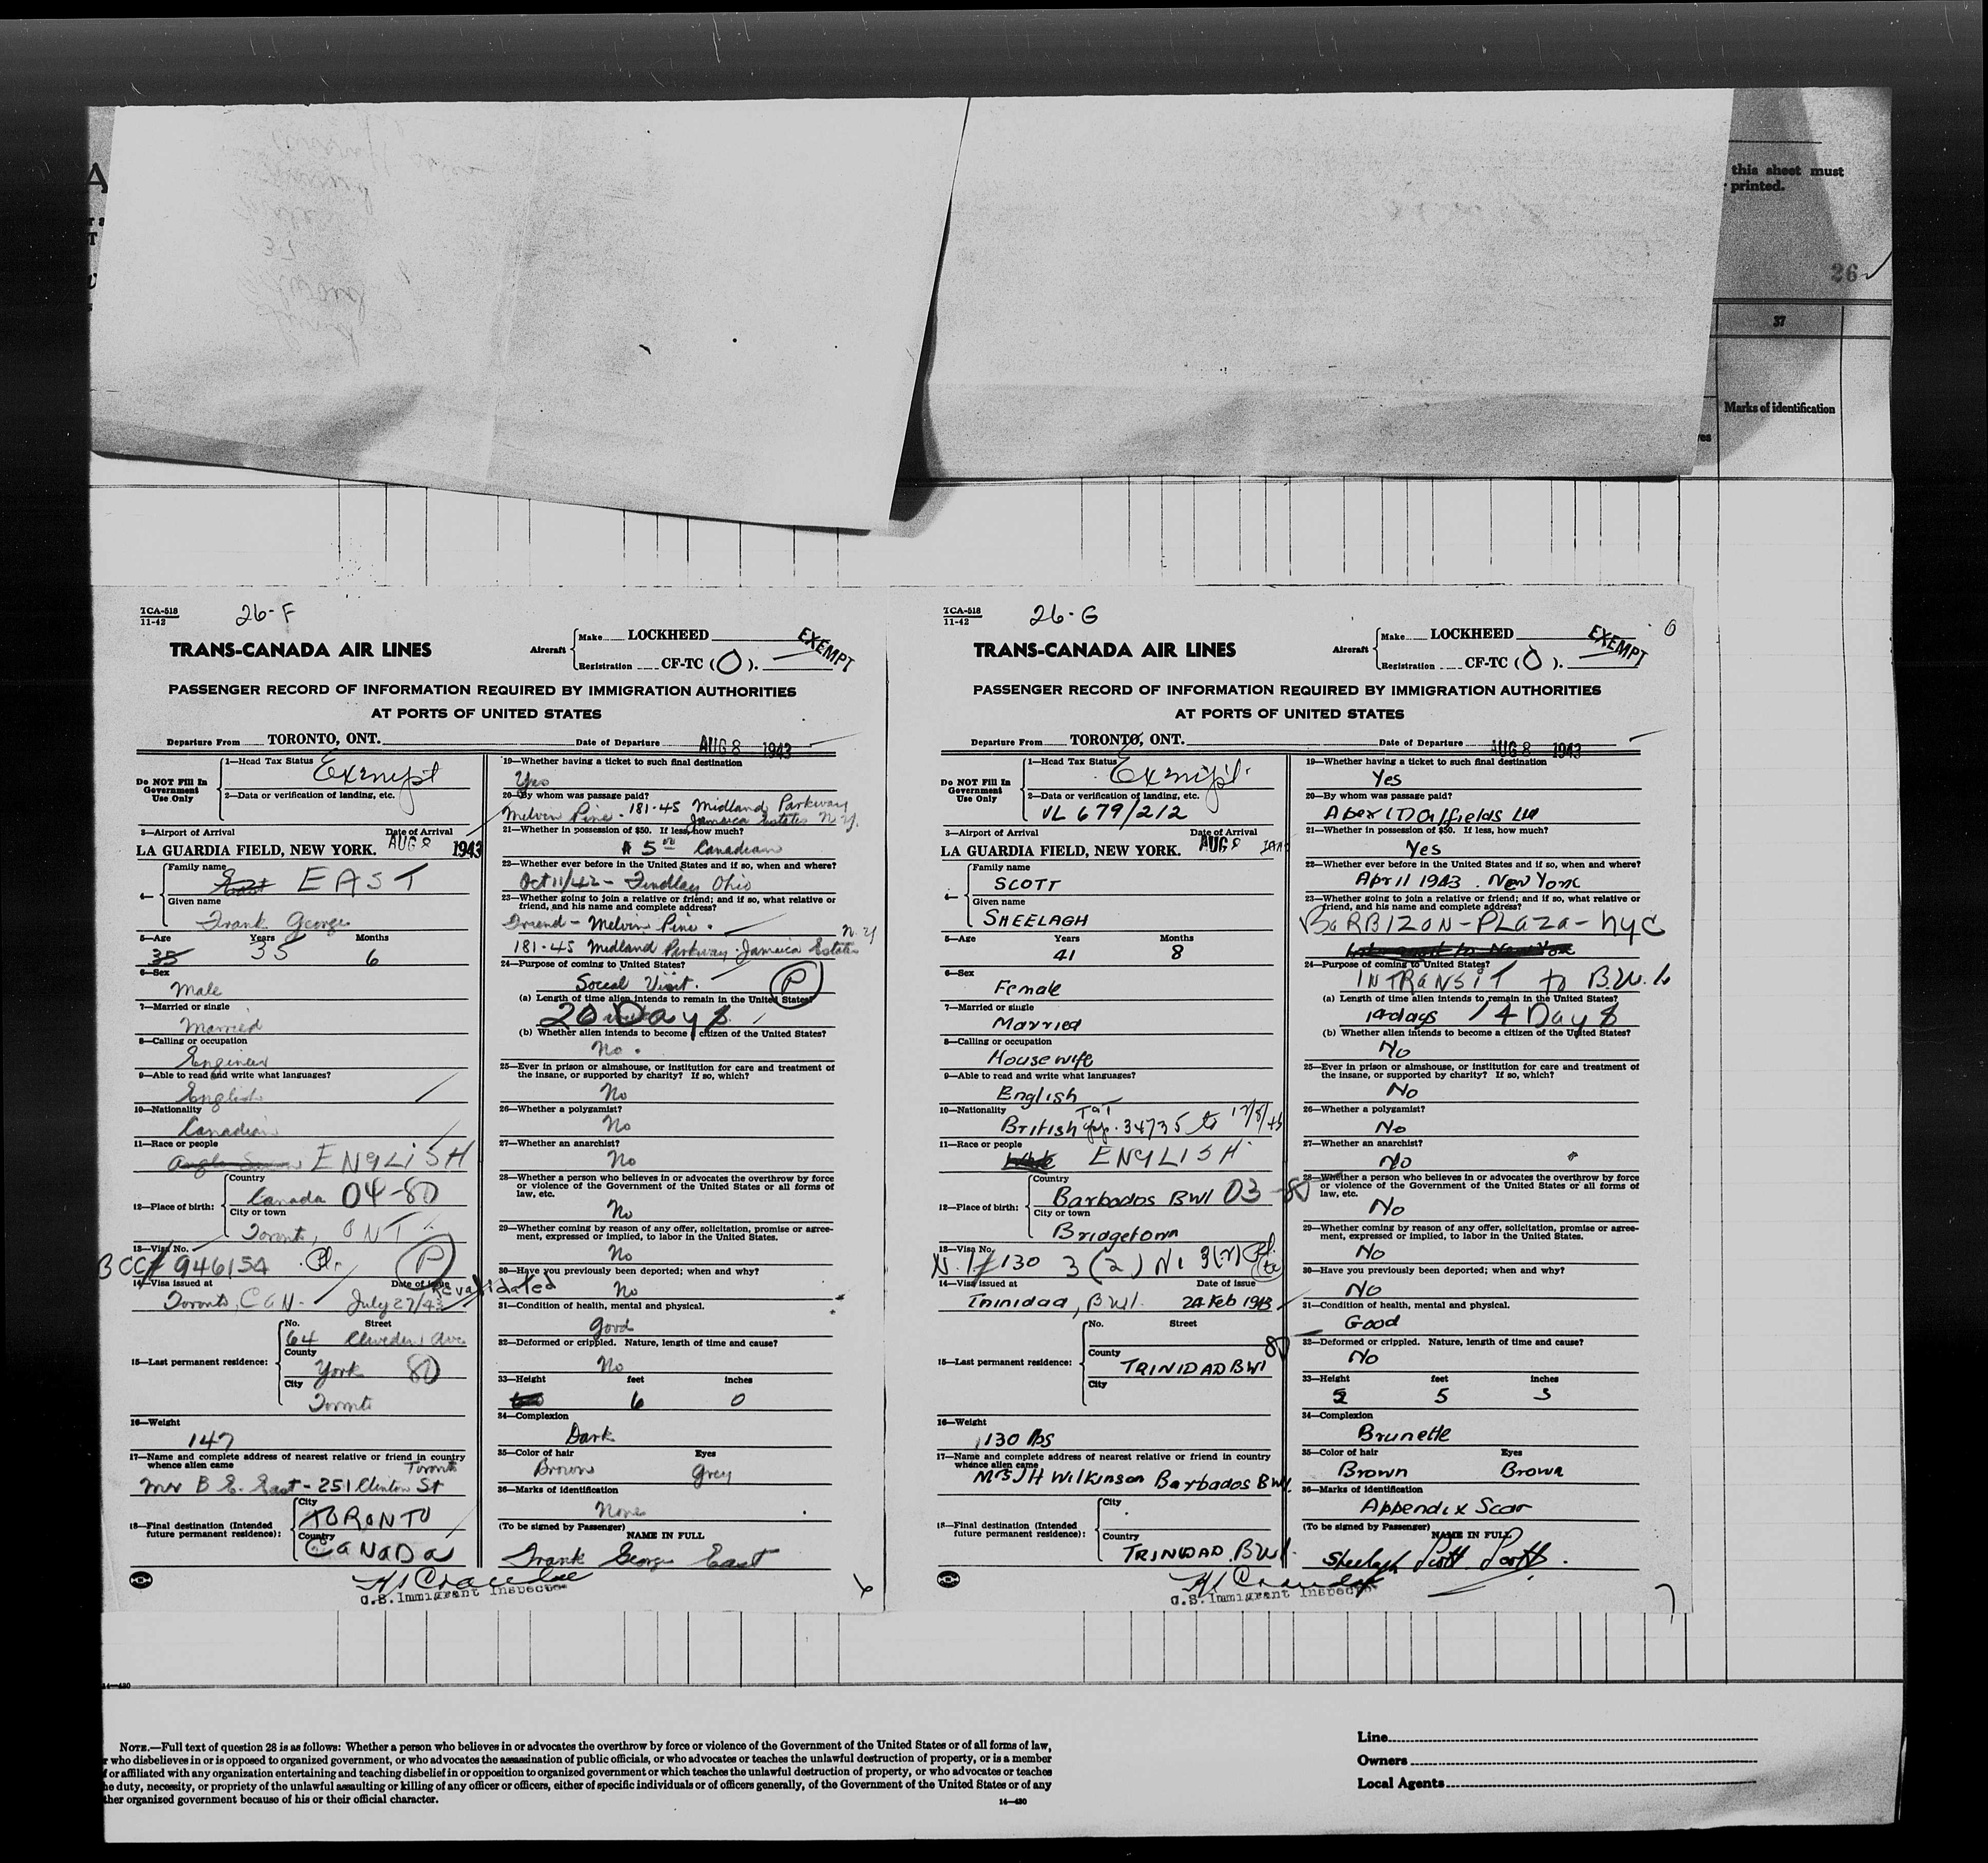 this sheet must
printed.
26
37
Marks of identification
TCA-518
11-42
26-F
TRANS-CANADA AIR LINES
Aircraft
Make LOCKHEED
Registration CF-TC (O).
EXEMPT
PASSENGER RECORD OF INFORMATION REQUIRED BY IMMIGRATION AUTHORITIES
AT PORTS OF UNITED STATES
Departure From TORONTO, ONT. Date of Departure AUG 8 1943
Do NOT Fill In
Government
Use Only
1—Head Tax Status
Exempt
2—Data or verification of landing, etc.
3—Airport of Arrival Date of Arrival
LA GUARDIA FIELD, NEW YORK. AUG 8 1943
4—
Family name
EAST
Given name
Frank George
5—Age Years Months
35 35 6
6—Sex
Male
7—Married or single
Married
8—Calling or occupation
Engineer
9—Able to read and write what languages?
English
10—Nationality
Canadian
11—Race or people
ENGLISH
12—Place of birth:
Country
Canada 04-80
City or town
Toronto, ONT
13—Visa No.
BCC# 946154
14—Visa issued at Date of issue
Toronto, CAN. July 27/43 Revalidated
15—Last permanent residence:
No. Street
64 Ave
County
York 80
City
Toronto
16—Weight
147
17—Name and complete address of nearest relative or friend in country
whence alien came
Toronto
B E. East - 251 Clinton St
18—Final destination (Intended
future permanent residence):
City
TORONTO
Country
CANADA
19—Whether having a ticket to such final destination
Yes
20—By whom was passage paid?
Melvin Pine. 181-45 Midland Parkway
Jamaica Estates N.Y.
21—Whether in possession of $50. If less, how much?
$5.00 Canadian
22—Whether ever before in the United States and if so, when and where?
Oct 11/42 - Findlay Ohio
23—Whether going to join a relative or friend; and if so, what relative or
friend, and his name and complete address?
Friend - Melvin Pine.
N.Y
181-45 Midland Parkway Jamaica Estates
24—Purpose of coming to United States?
Social Visit. P
(a) Length of time alien intends to remain in the United States?
20 Days
(b) Whether alien intends to become citizen of the United States?
No.
25—Ever in prison or almshouse, or institution for care and treatment of
the insane, or supported by charity? If so, which?
No
26—Whether a polygamist?
No
27—Whether an anarchist?
No
28—Whether a person who believes in or advocates the overthrow by force
or violence of the Government of the United States or all forms of
law, etc.
No
29—Whether coming by reason of any offer, solicitation, promise or agree-
ment, expressed or implied, to labor in the United States.
No
30—Have you previously been deported; when and why?
No
31—Condition of health, mental and physical.
Good
32—Deformed or crippled. Nature, length of time and cause?
No
33—Height feet inches
6 0
34—Complexion
Dark
35—Color of hair Eyes
Brown Grey
36—Marks of identification
None
(To be signed by Passenger)
NAME IN FULL
Frank George East
U.S. Immigrant Inspector
TCA-518
11-42
26-G
TRANS-CANADA AIR LINES
Aircraft
Make LOCKHEED
Registration CF-TC (O).
EXEMPT
PASSENGER RECORD OF INFORMATION REQUIRED BY IMMIGRATION AUTHORITIES
AT PORTS OF UNITED STATES
Departure From TORONTO, ONT. Date of Departure AUG 8 1943
Do NOT Fill In
Government
Use Only
1—Head Tax Status
Exempt
2—Data or verification of landing, etc.
VL 679/212
3—Airport of Arrival Date of Arrival
LA GUARDIA FIELD, NEW YORK. AUG 8
4—
Family name
SCOTT
Given name
SHEELAGH
5—Age Years Months
41 8
6—Sex
Female
7—Married or single
Married
8—Calling or occupation
Housewife
9—Able to read and write what languages?
English
10—Nationality
British 34735 to
11—Race or people
ENGLISH
12—Place of birth:
Country
Barbados BWI 03-80
City or town
Bridgetown
13—Visa No.
130 3(2)
14—Visa issued at Date of issue
Trinidad, BWI. 24 Feb 1943
15—Last permanent residence:
No. Street
80
County
TRINIDAD BWI
City
16—Weight
130 lbs
17—Name and complete address of nearest relative or friend in country
whence alien came
Mrs JH Wilkinson Barbados BWI.
18—Final destination (Intended
future permanent residence):
City
Country
TRINIDAD. BWI.
19—Whether having a ticket to such final destination
Yes
20—By whom was passage paid?
Apex (T) Oilfields Ltd
21—Whether in possession of $50. If less, how much?
Yes
22—Whether ever before in the United States and if so, when and where?
April 1943. New York
23—Whether going to join a relative or friend; and if so, what relative or
friend, and his name and complete address?
BARBIZON-PLAZA-NYC
24—Purpose of coming to United States?
INTRANSIT to B.W.I.
(a) Length of time alien intends to remain in the United States?
14 days 14 Days
(b) Whether alien intends to become a citizen of the United States?
No
25—Ever in prison or almshouse, or institution for care and treatment of
the insane, or supported by charity? If so, which?
No
26—Whether a polygamist?
No
27—Whether an anarchist?
No
28—Whether a person who believes in or advocates the overthrow by force
or violence of the Government of the United States or all forms of
law, etc.
No
29—Whether coming by reason of any offer, solicitation, promise or agree-
ment, expressed or implied, to labor in the United States.
No
30—Have you previously been deported; when and why?
No
31—Condition of health, mental and physical.
Good
32—Deformed or crippled. Nature, length of time and cause?
No
33—Height feet inches
5 3
34—Complexion
Brunette
35—Color of hair Eyes
Brown Brown
36—Marks of identification
Appendix Scar
(To be signed by Passenger)
NAME IN FULL
Sheelagh Scott Scott.
U.S. Immigrant Inspector
14—430
NOTE.—Full text of question 28 is as follows: Whether a person who believes in or advocates the overthrow by force or violence of the Government of the United States or of all forms of law,
r who disbelieves in or is opposed to organized government, or who advocates the assassination of public officials, or who advocates or teaches the unlawful destruction of property, or is a member
f or affiliated with any organization entertaining and teaching disbelief in or opposition to organized government or which teaches the unlawful destruction of property, or who advocates or teaches
he duty, necessity, or propriety of the unlawful assaulting or killing of any officer or officers, either of specific individuals or of officers generally, of the Government of the United States or of any
ther organized government because of his or their official character.
14—430
Line
Owners
Local Agents